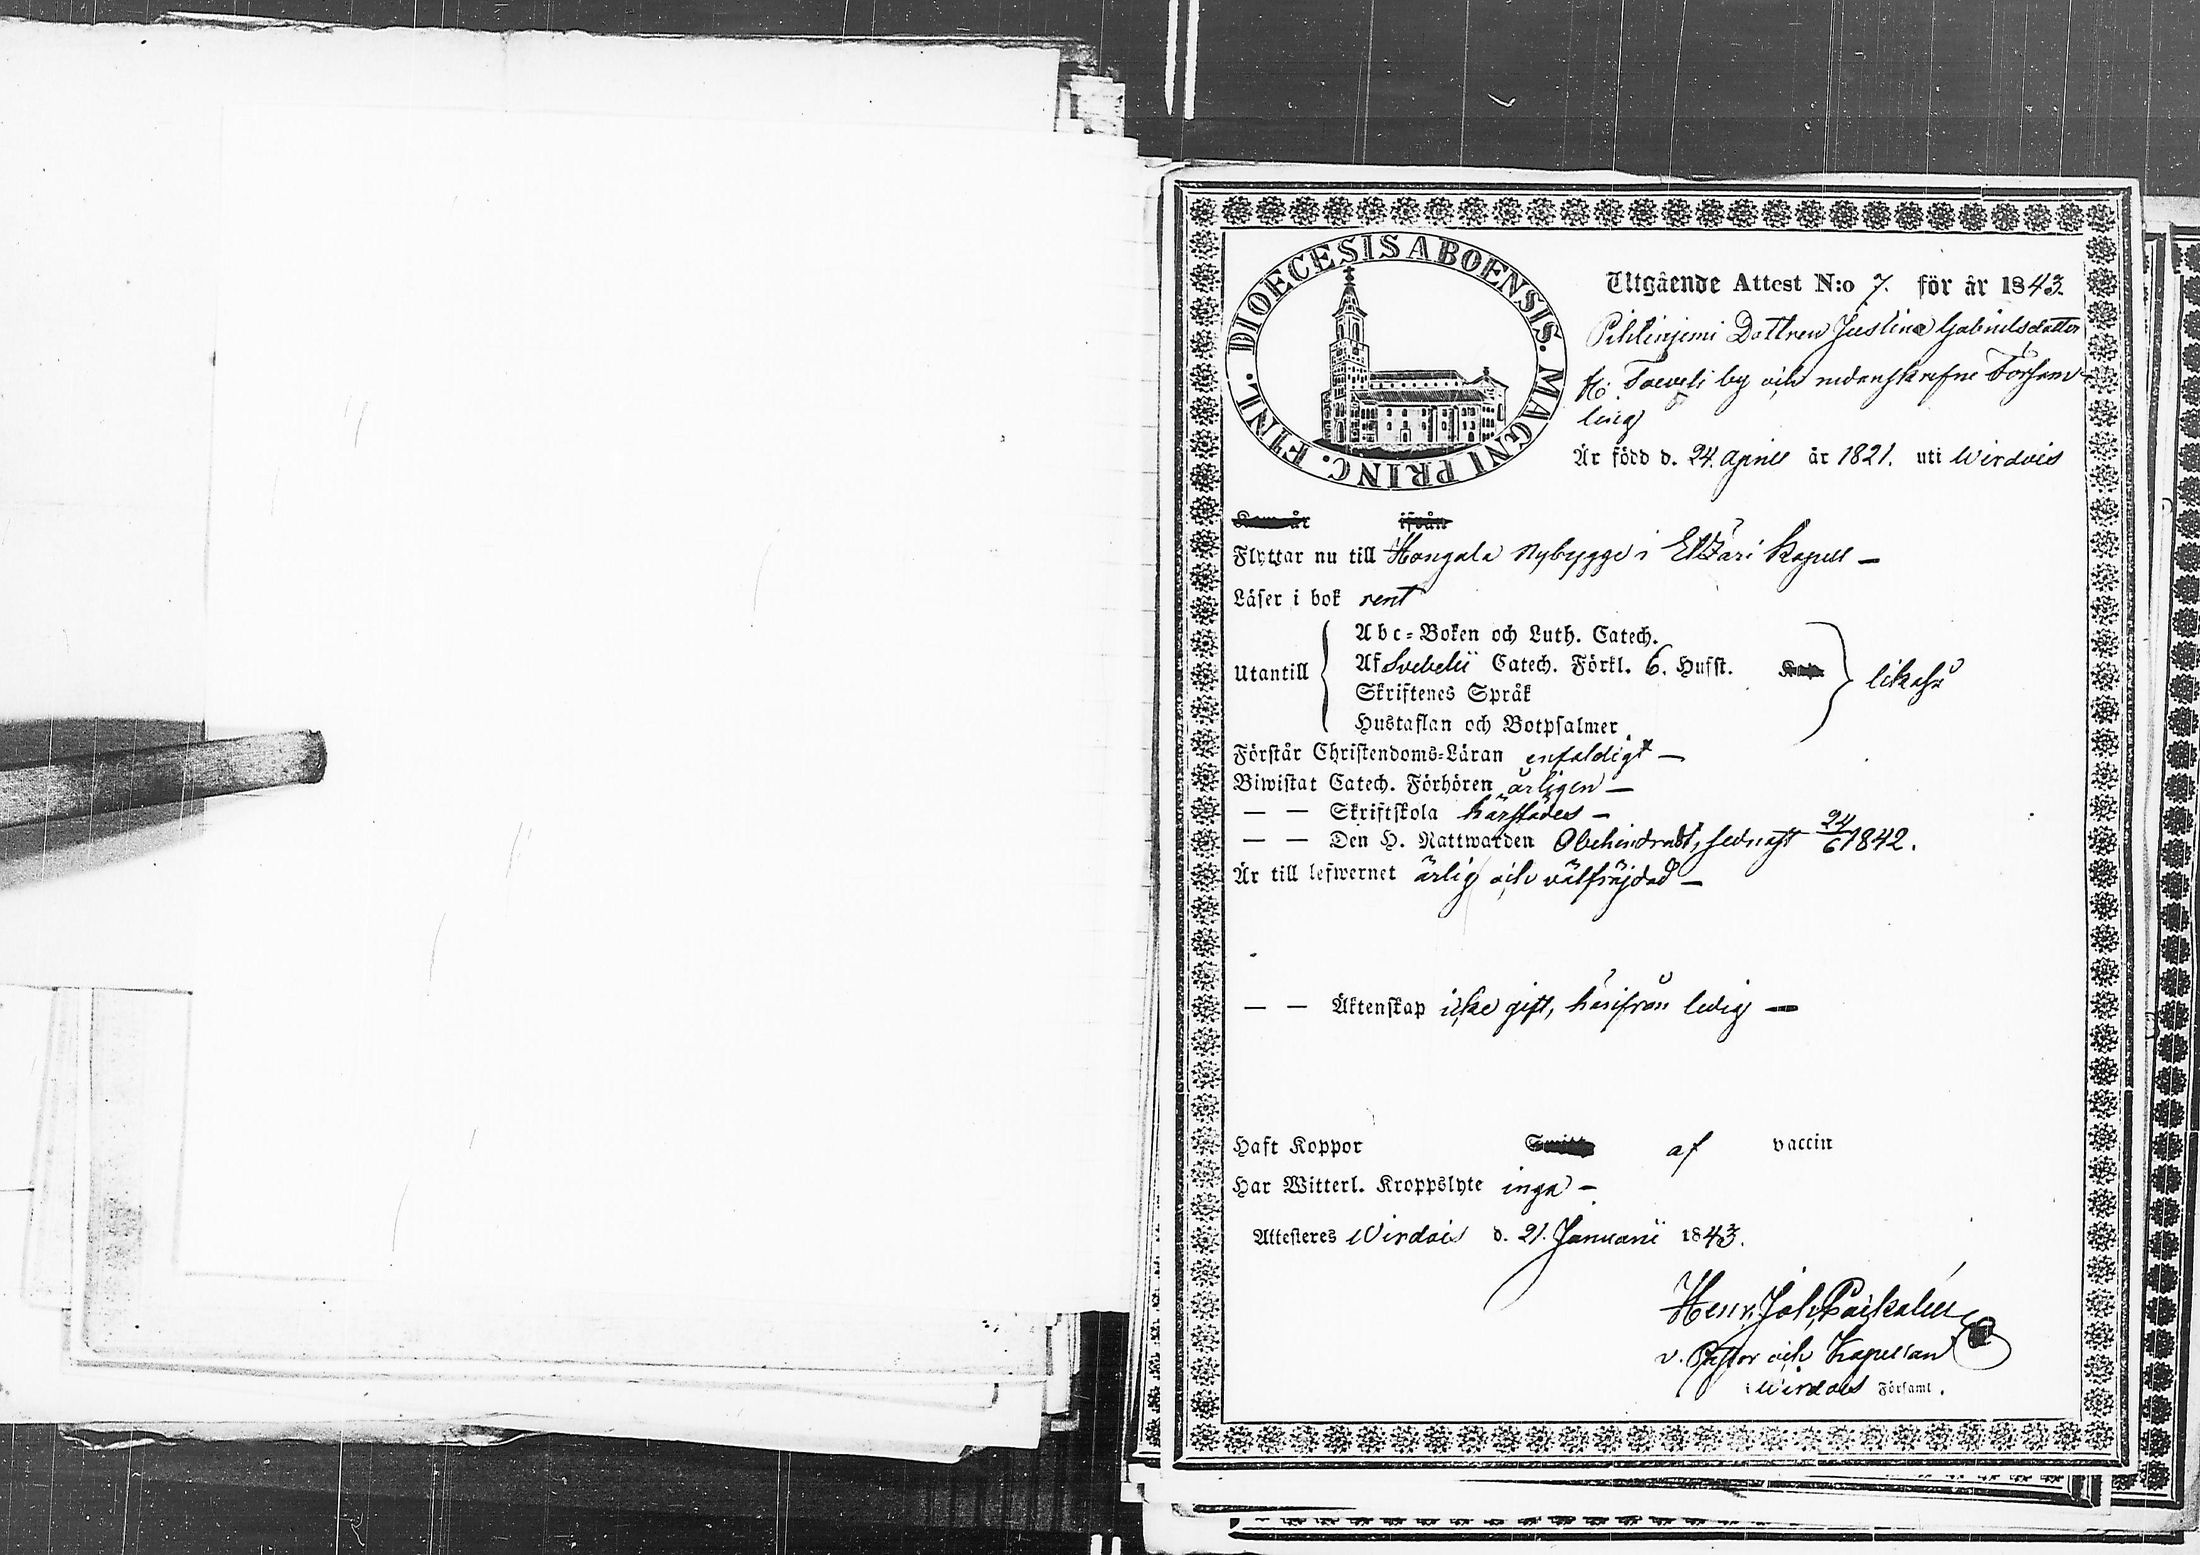 DIOECESIS ABOENSIS. MAGNI PRINC. FINL.
Utgående Attest N:o 7. för år 1843.
Dottren Justina Gabrielsdotter
by och nedanskrefne Församling
ling
Är född d. 24. April år 1821. uti Wirdois
Kom år ifrån
Flyttar nu till Hangala Nybygge i Etzäri Kapell –
Läser i bok rent
Abc-Boken och Luth. Catech.
Utantill Af Svebelii Catech. Förkl. 6. Hufst. likaså
Skriftenes Språk
Hustaflan och Botpsalmer
Förstår Christendoms-Läran enfaldigt –
Biwistat Catech. Förhören årligen –
– – Skriftskola härstädes –
– – Den H. Nattwarden Obehindradt, sednast 24/6 1842.
Är till lefwernet ärlig och välfräjdad –
– – Äktenskap icke gift, härifrån ledig –
Haft Koppor af vaccin
Har Witterl. Kroppslyte inga –
Attesteres Wirdois d. 21. Januarii 1843.
Henr. Joh.
v. Pastor och Kapellan
i Wirdois Församl.